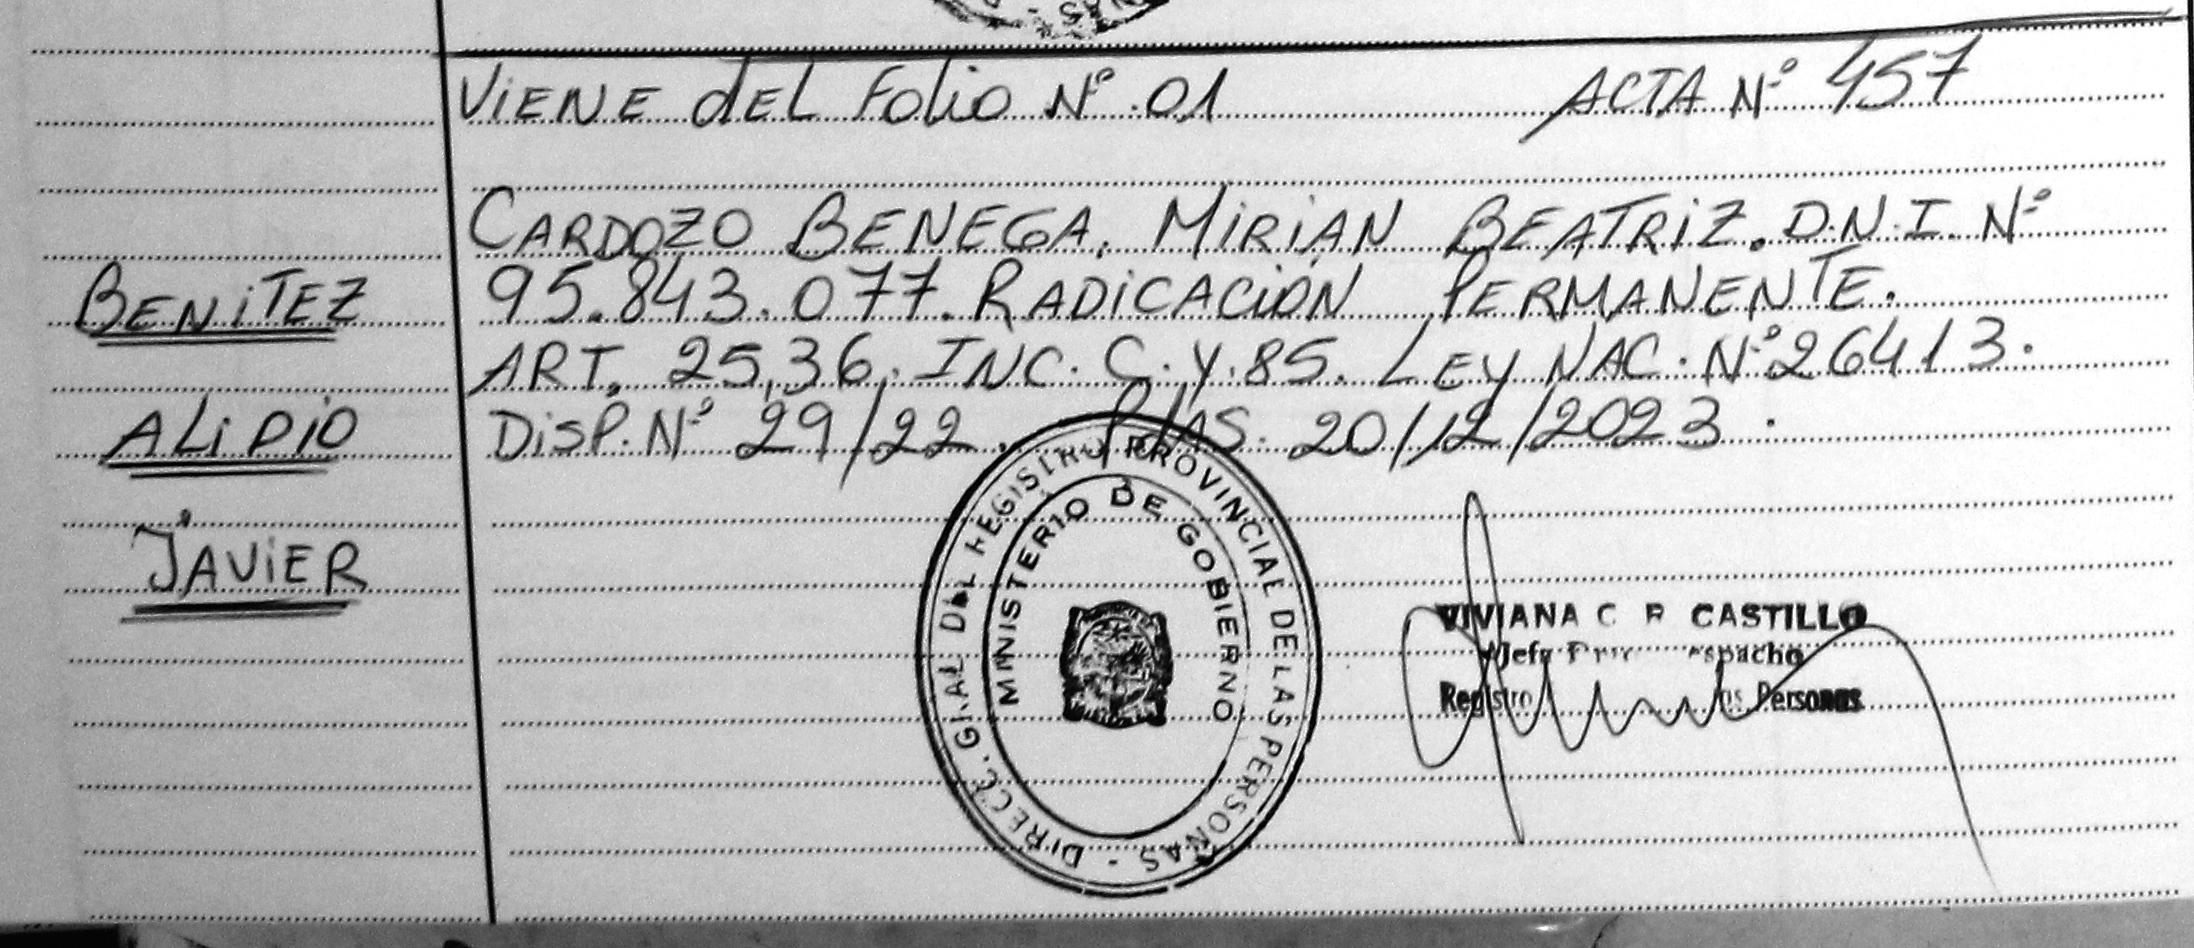 VIENE dEL Folio Nº 01 ACTA Nº 457
CARDOZO BENEGA, MIRIAN BEATRIZ. D.N.I. Nº
BENITEZ
95.843.077. RADICACIÓN PERMANENTE.
ART. 25,36, INC. C. Y. 85. LEY NAC. Nº 26413.
ALIDIO
DISP. Nº 29/22. Pdas. 20/12/2023.
JAVIER
DIRECC. GRAL DEL REGISTRO PROVINCIAL DE LAS PERSONAS -
MINISTERIO DE GOBIERNO
VIVIANA C R CASTILLO
Jefa Despacho
Registro Personas